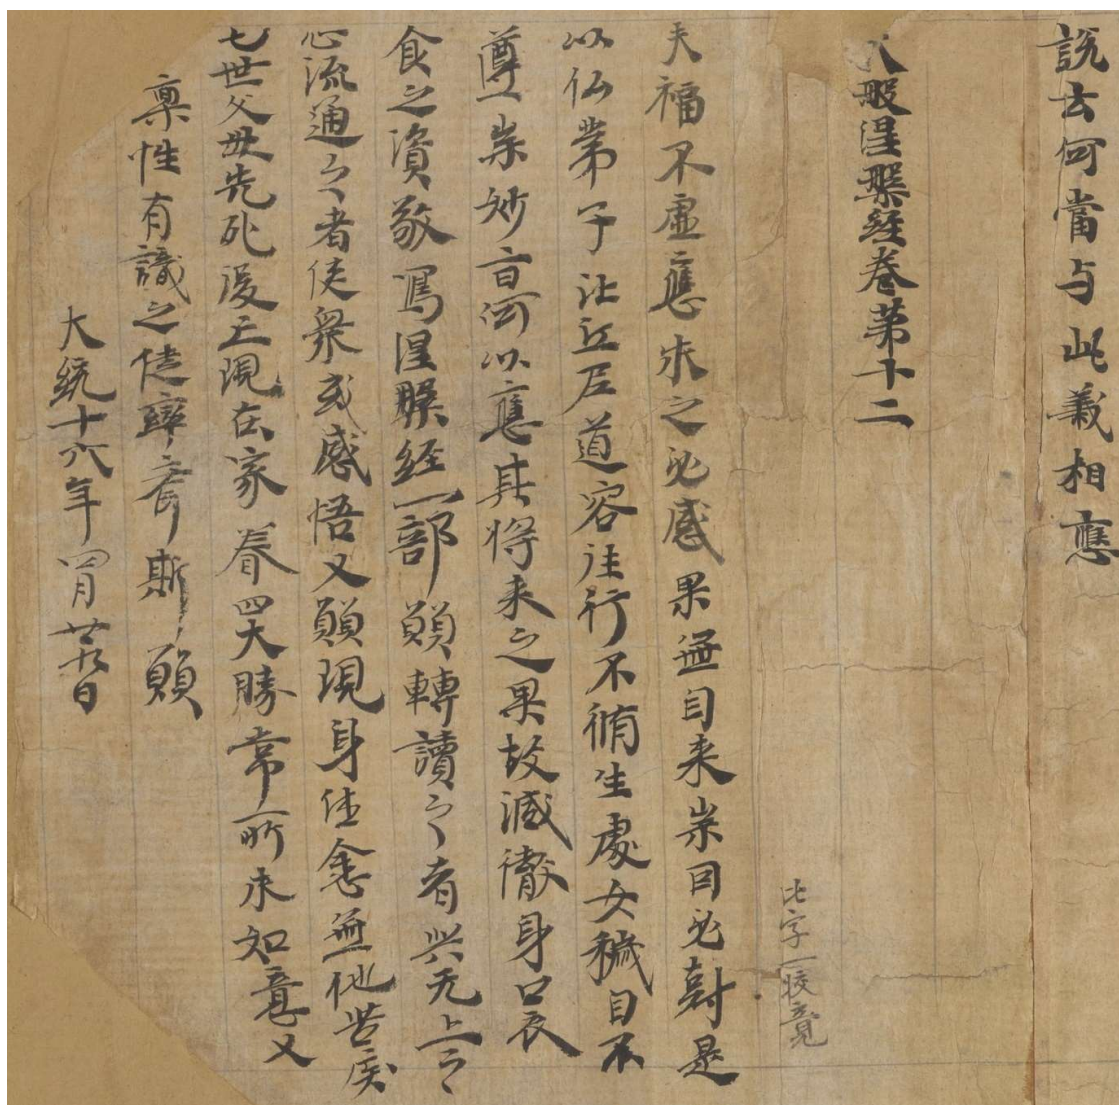 說云何當与此義相應
大般涅槃経卷第十二
比字一校竟
夫福不虛應求之必感果無自来崇因必尅是
以仏弟子比丘尼道容往行不脩生處女穢自不
尊崇妙旨何以應其将来之果故減徹身口衣
食之資敬寫涅槃経一部願轉讀之者興无上之
心流通之者使衆或感悟又願現身住念無他苦疾
七世父母先死後亡現在家眷四大勝常所求如意又
禀性有識之徒率齊斯願
大統十六年四月廿九日